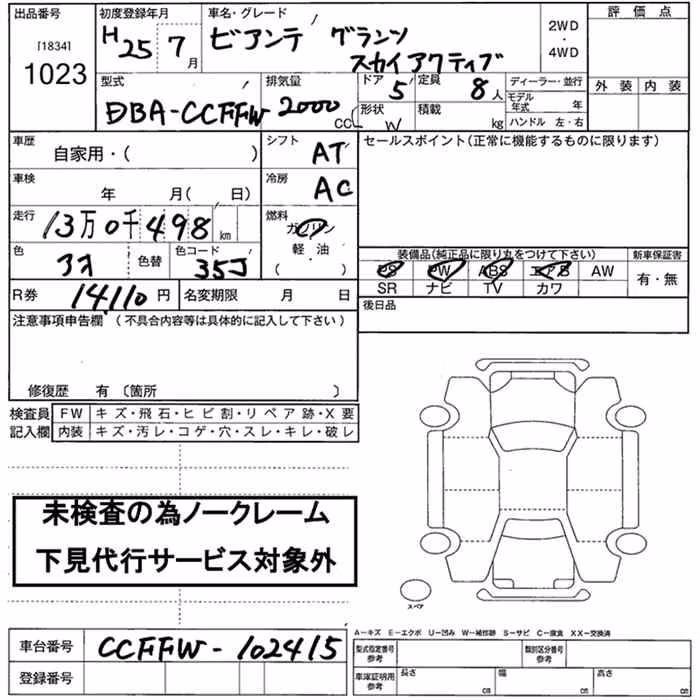 出品番号 初度登録年月 車名・グレード 評価点
[1834]
1023
H 25 7月 ビアンテ グランツ
スカイアクティブ
2WD
・
4WD
外装 内装
型式 排気量 ドア 定員 ディーラー・並行
DBA-CCFFW 2000 CC 5 8人
モデル年式 年
形状 積載 ハンドル 左・右
W kg
車歴 シフト セールスポイント(正常に機能するものに限ります)
自家用・( ) AT
車検 冷房
年 月( 日) AC
走行 燃料
13万0千498km ガソリン
軽・油
( )
色 色替 色コード
35J
装備品(純正品に限り丸をつけて下さい) 新車保証書
PS PW ABS エアB AW 有・無
SR ナビ TV カワ
R券 14110円 名変期限 月 日 後日品
注意事項申告欄 (不具合内容等は具体的に記入して下さい)
修復歴 有 〔箇所 〕
検査員 FW キズ・飛石・ヒビ割・リペア跡・X要
記入欄 内装 キズ・汚レ・コゲ・穴・スレ・キレ・破レ
未検査の為ノークレーム
下見代行サービス対象外
スペア
A-キズ E-エクボ U-凹み W-補修跡 S-サビ C-腐食 XX-交換済
車台番号 CCFFW-102415
型式指定番号 参考 類別区分番号 参考
登録番号
車庫証明用 参考 長さ cm 幅 cm 高さ cm